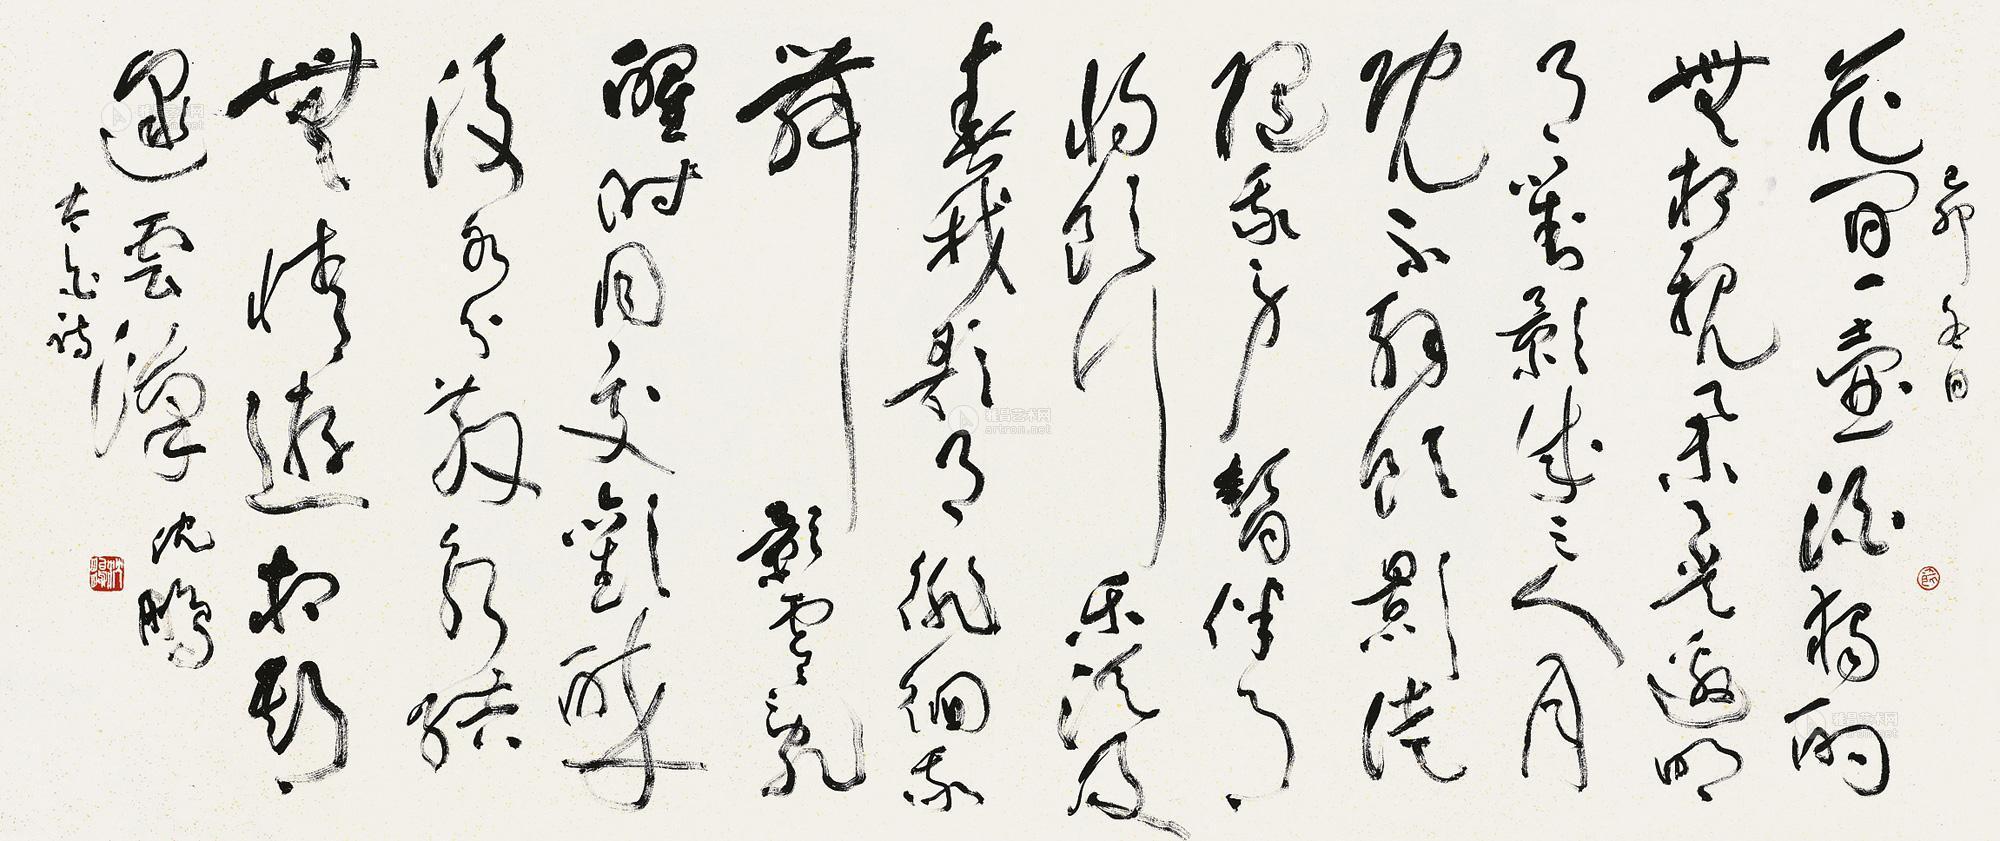 己卯冬日
花间一壺酒獨酌
無相親舉杯邀明
月對影成三人月
既不解飲影徒
隨我身暫伴月
將影行樂須及
春我歌月徘徊我
舞影零亂
醒時同交歡醉
後各分散永結
無情遊相期
邈雲漢 沈鵬
太白詩
雅昌艺术网
artron.net